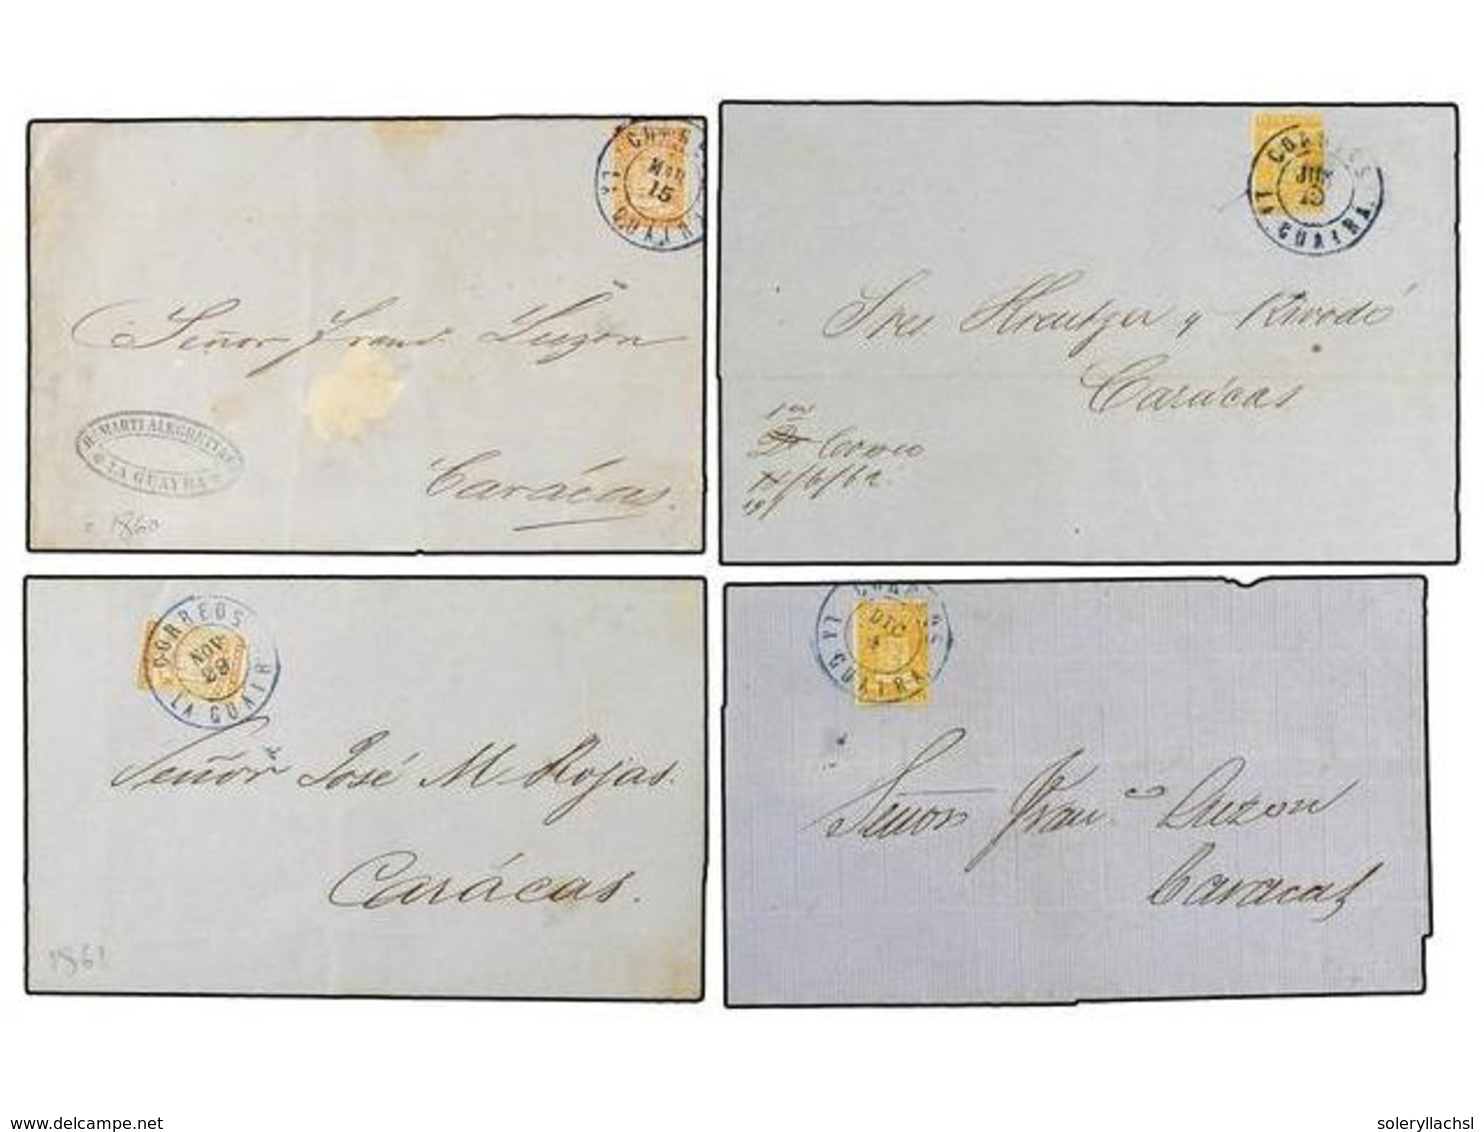 CORREOS
MAR
15
LA GUAIRA
Señor Franco Luzon
Carácas.
H. MARTI ALEGRETT
LA GUAYRA
1860
CORREOS
JUN
LA GUAIRA
Sres Kreutzer y Rivodó
Carácas
1er
Correo
/6/62
19
CORREOS
NOV
29
LA GUAIRA
Señor José M. Rojas.
Carácas.
1861
CORREOS
DIC
LA GUAIRA
Señor Franco Luzon
Caracas
www.delcampe.net
soleryllachsl